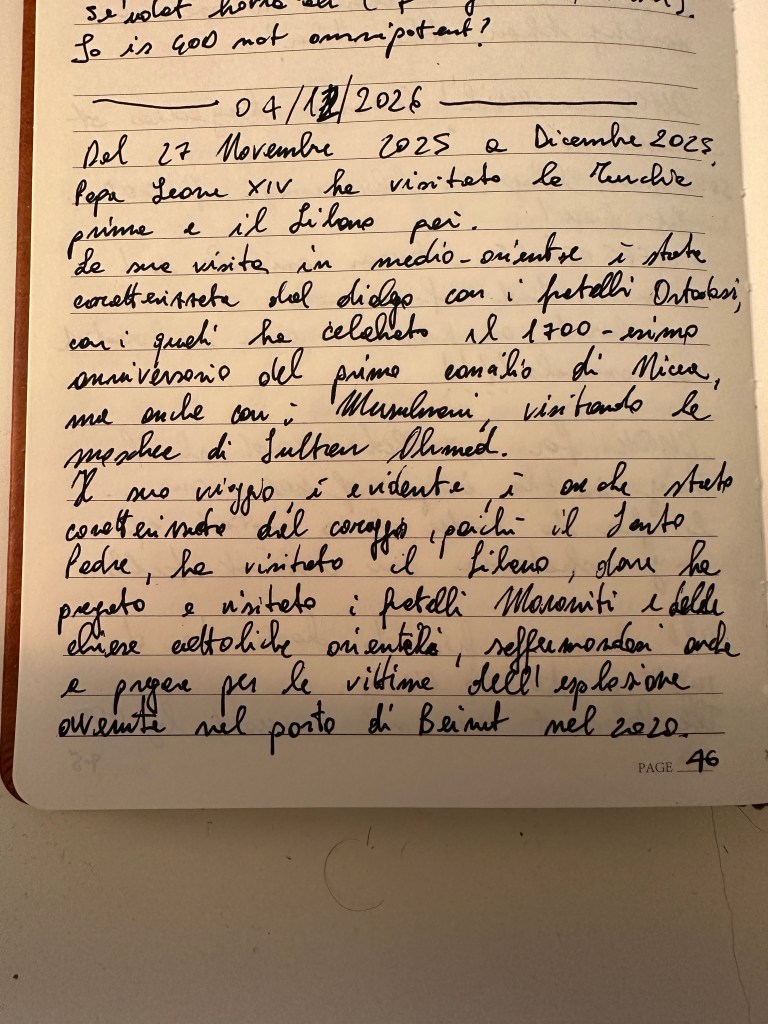 So is GOD not omnipotent?
04/12/2026
Del 27 Novembre 2025 a Dicembre 2025,
Papa Leone XIV ha visitato la Turchia
prima e il Libano poi.
La sua visita in medio-orientre è stata
caratterizzata dal dialgo con i fratelli Ortodossi,
con i quali ha celebrato il 1700-esimo
anniversario del primo concilio di Nicea,
ma anche con i Musulmani, visitando la
moschea di Sultan Ahmed.
Il suo viaggio, è evidente, è anche stato
caratterizzato dal coraggio, poichè il Santo
Padre, ha visitato il Libano, dove ha
pregato e visitato i fratelli Maroniti e delle
chiese cattoliche orientali, soffermandosi anche
a pregare per le vittime dell'esplosione
avvenuta nel porto di Beirut nel 2020.
PAGE 46